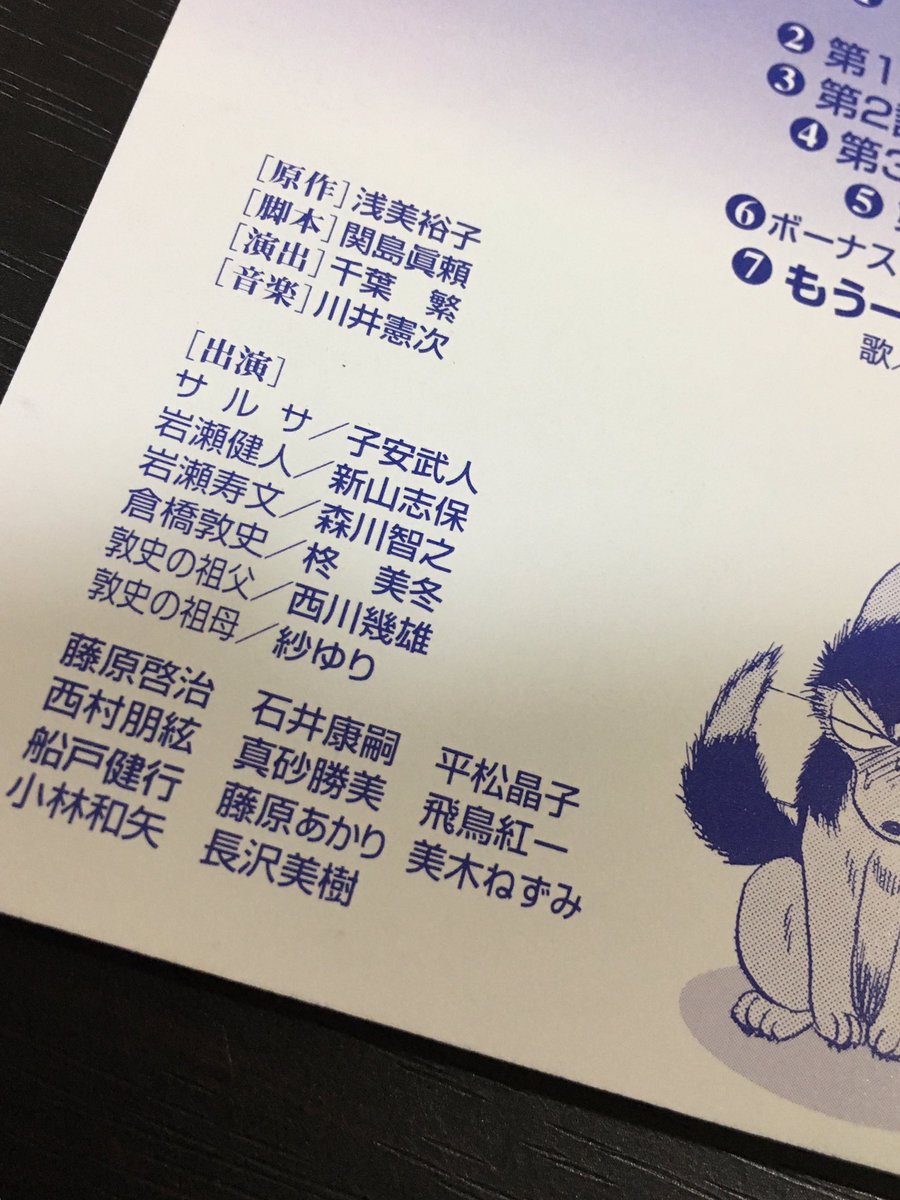 ❷ 第1
❸ 第2話
❹ 第3
❺
❻ ボーナス
❼ もう一
歌／
［原作］浅美裕子
［脚本］関島眞頼
［演出］千葉　繁
［音楽］川井憲次
［出演］
サ ル サ／子安武人
岩瀬健人／新山志保
岩瀬寿文／森川智之
倉橋敦史／柊　美冬
敦史の祖父／西川幾雄
敦史の祖母／紗ゆり
藤原啓治　石井康嗣　平松晶子
西村朋紘　真砂勝美　飛鳥紅一
船戸健行　藤原あかり　美木ねずみ
小林和矢　長沢美樹